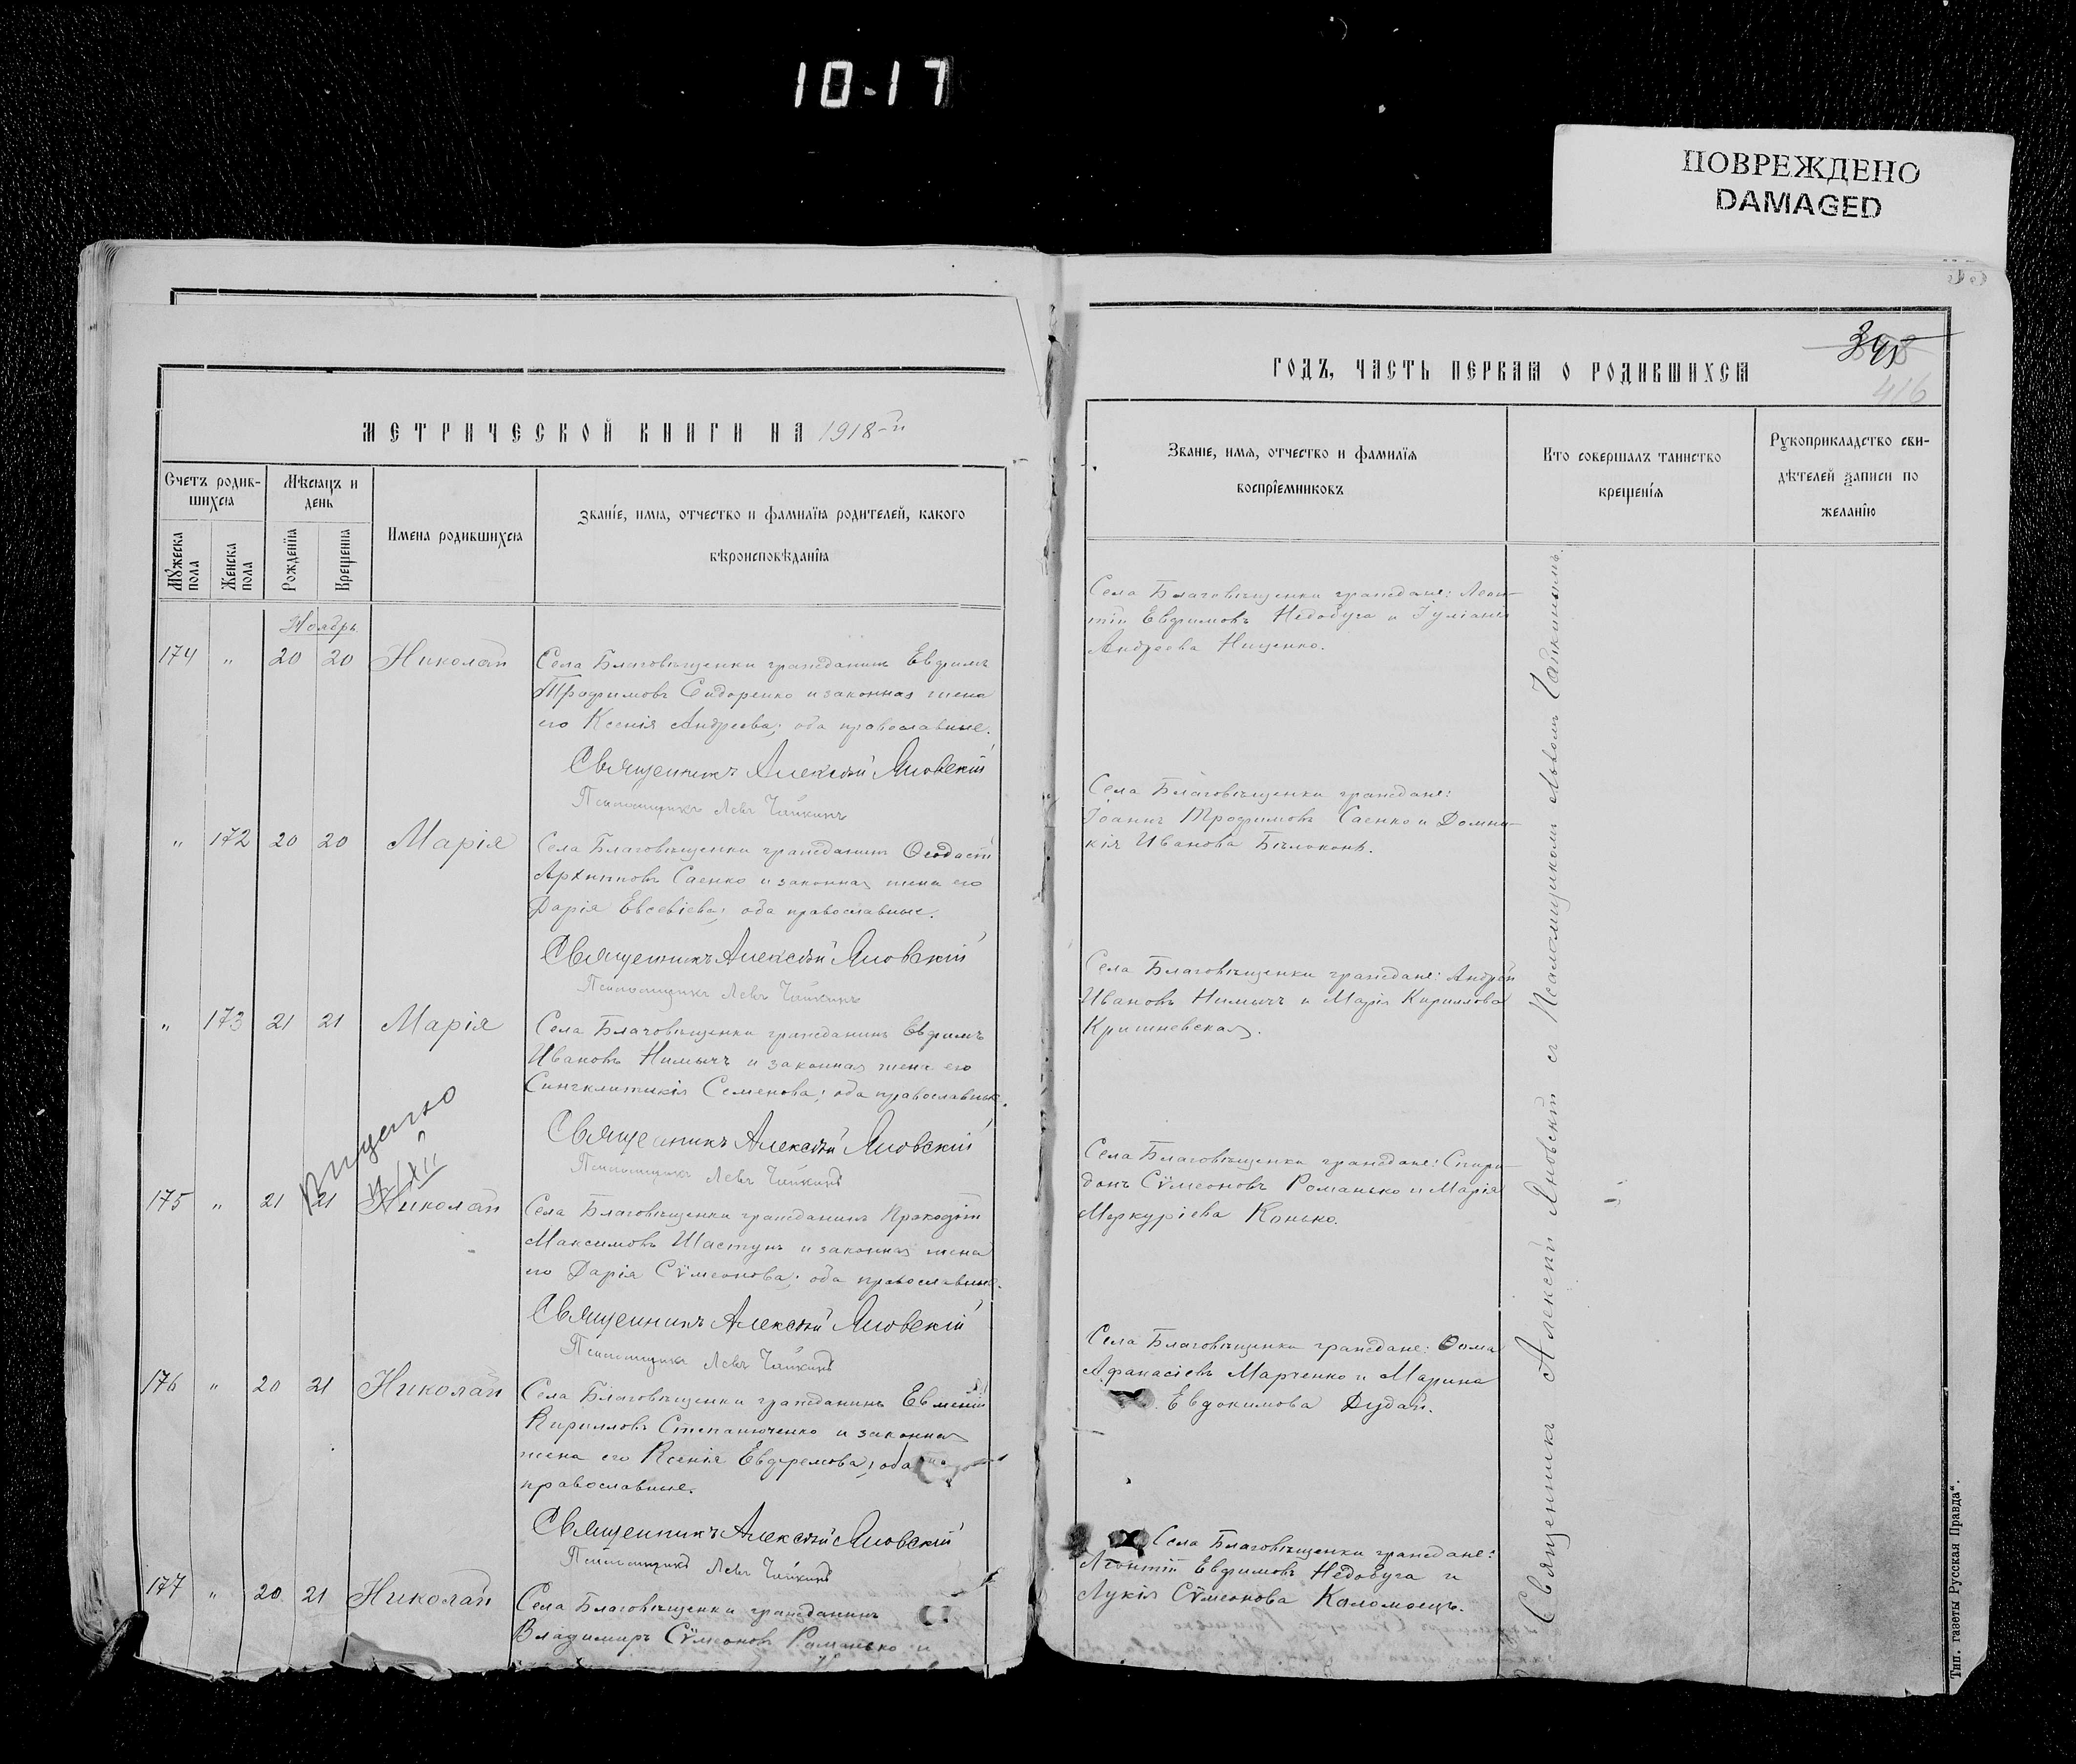 10-17
ПОВРЕЖДЕНО
DAMAGED
МЕТРИЧЕСКОЙ КНИГИ НА 1918-й
Счетъ родившихся
Мѣсяцъ и день
Мужеска пола
Женска пола
Рожденїя
Крещенїя
Имена родившихся
Званїе, имя, отчество и фамилїя родителей, какого
вѣроисповѣданїя
Ноябрь
174 " 20 20 Николай
Села Благовѣщенки гражданинъ Евфимъ
Трофимовъ Сидоренко и законная жена
его Ксенія Андреева; оба православные.
Священникъ Алексѣй Яновскій
Псаломщикъ Левъ Чайкинъ
" 172 20 20 Марія
Села Благовѣщенки гражданинъ Ѳеодосій
Архиповъ Саенко и законная жена его
Дарія Евсевіева; оба православные.
Священникъ Алексѣй Яновскій
Псаломщикъ Левъ Чайкинъ
" 173 21 21 Марія
Села Благовѣщенки гражданинъ Евфимъ
Ивановъ Нимычъ и законная жена его
Синклитикія Семенова; оба православные.
Священникъ Алексѣй Яновскій
Псаломщикъ Левъ Чайкинъ
175 " 21 21 Николай
Села Благовѣщенки гражданинъ
Максимовъ Шастунъ и законная жена
его Дарія Сѵмеонова; оба православные.
Священникъ Алексѣй Яновскій
Псаломщикъ Левъ Чайкинъ
176 " 20 21 Николай
Села Благовѣщенки гражданинъ Евменій
Кирилловъ Степанюченко и законная
жена его Ксенія Евфремова; оба
православные.
Священникъ Алексѣй Яновскій
Псаломщикъ Левъ Чайкинъ
177 " 20 21 Николай
Села Благовѣщенки гражданинъ
Владимиръ Сѵмеоновъ Романько и
ГОДЪ, ЧАСТЬ ПЕРВАЯ О РОДИВШИХСЯ
416
Званїе, имя, отчество и фамилїя
воспрїемниковъ
Кто совершалъ таинство
крещенїя
Рукоприкладство сви-
дѣтелей записи по
желанїю
Села Благовѣщенки граждане: Леон-
тій Евфимовъ Недобуга и Іуліанія
Андреева Нищенко.
Села Благовѣщенки граждане:
Іоаннъ Трофимовъ Саенко и Домни-
кія Иванова Бѣлоконь.
Села Благовѣщенки граждане: Андрей
Ивановъ Нимычъ и Марія Кириллова
Кришневская.
Села Благовѣщенки граждане: Спири-
донъ Сѵмеоновъ Романько и Марія
Меркуріева Конько.
Села Благовѣщенки граждане: Ѳома
Аѳанасіевъ Марченко и Марина
Евдокимова Дудай.
Села Благовѣщенки граждане:
Леонтій Евфимовъ Недобуга и
Лукія Сѵмеонова Коломоецъ.
Священникъ Алексѣй Яновскій съ Псаломщикомъ Львомъ Чайкинымъ.
Тип. газеты Русская Правда".